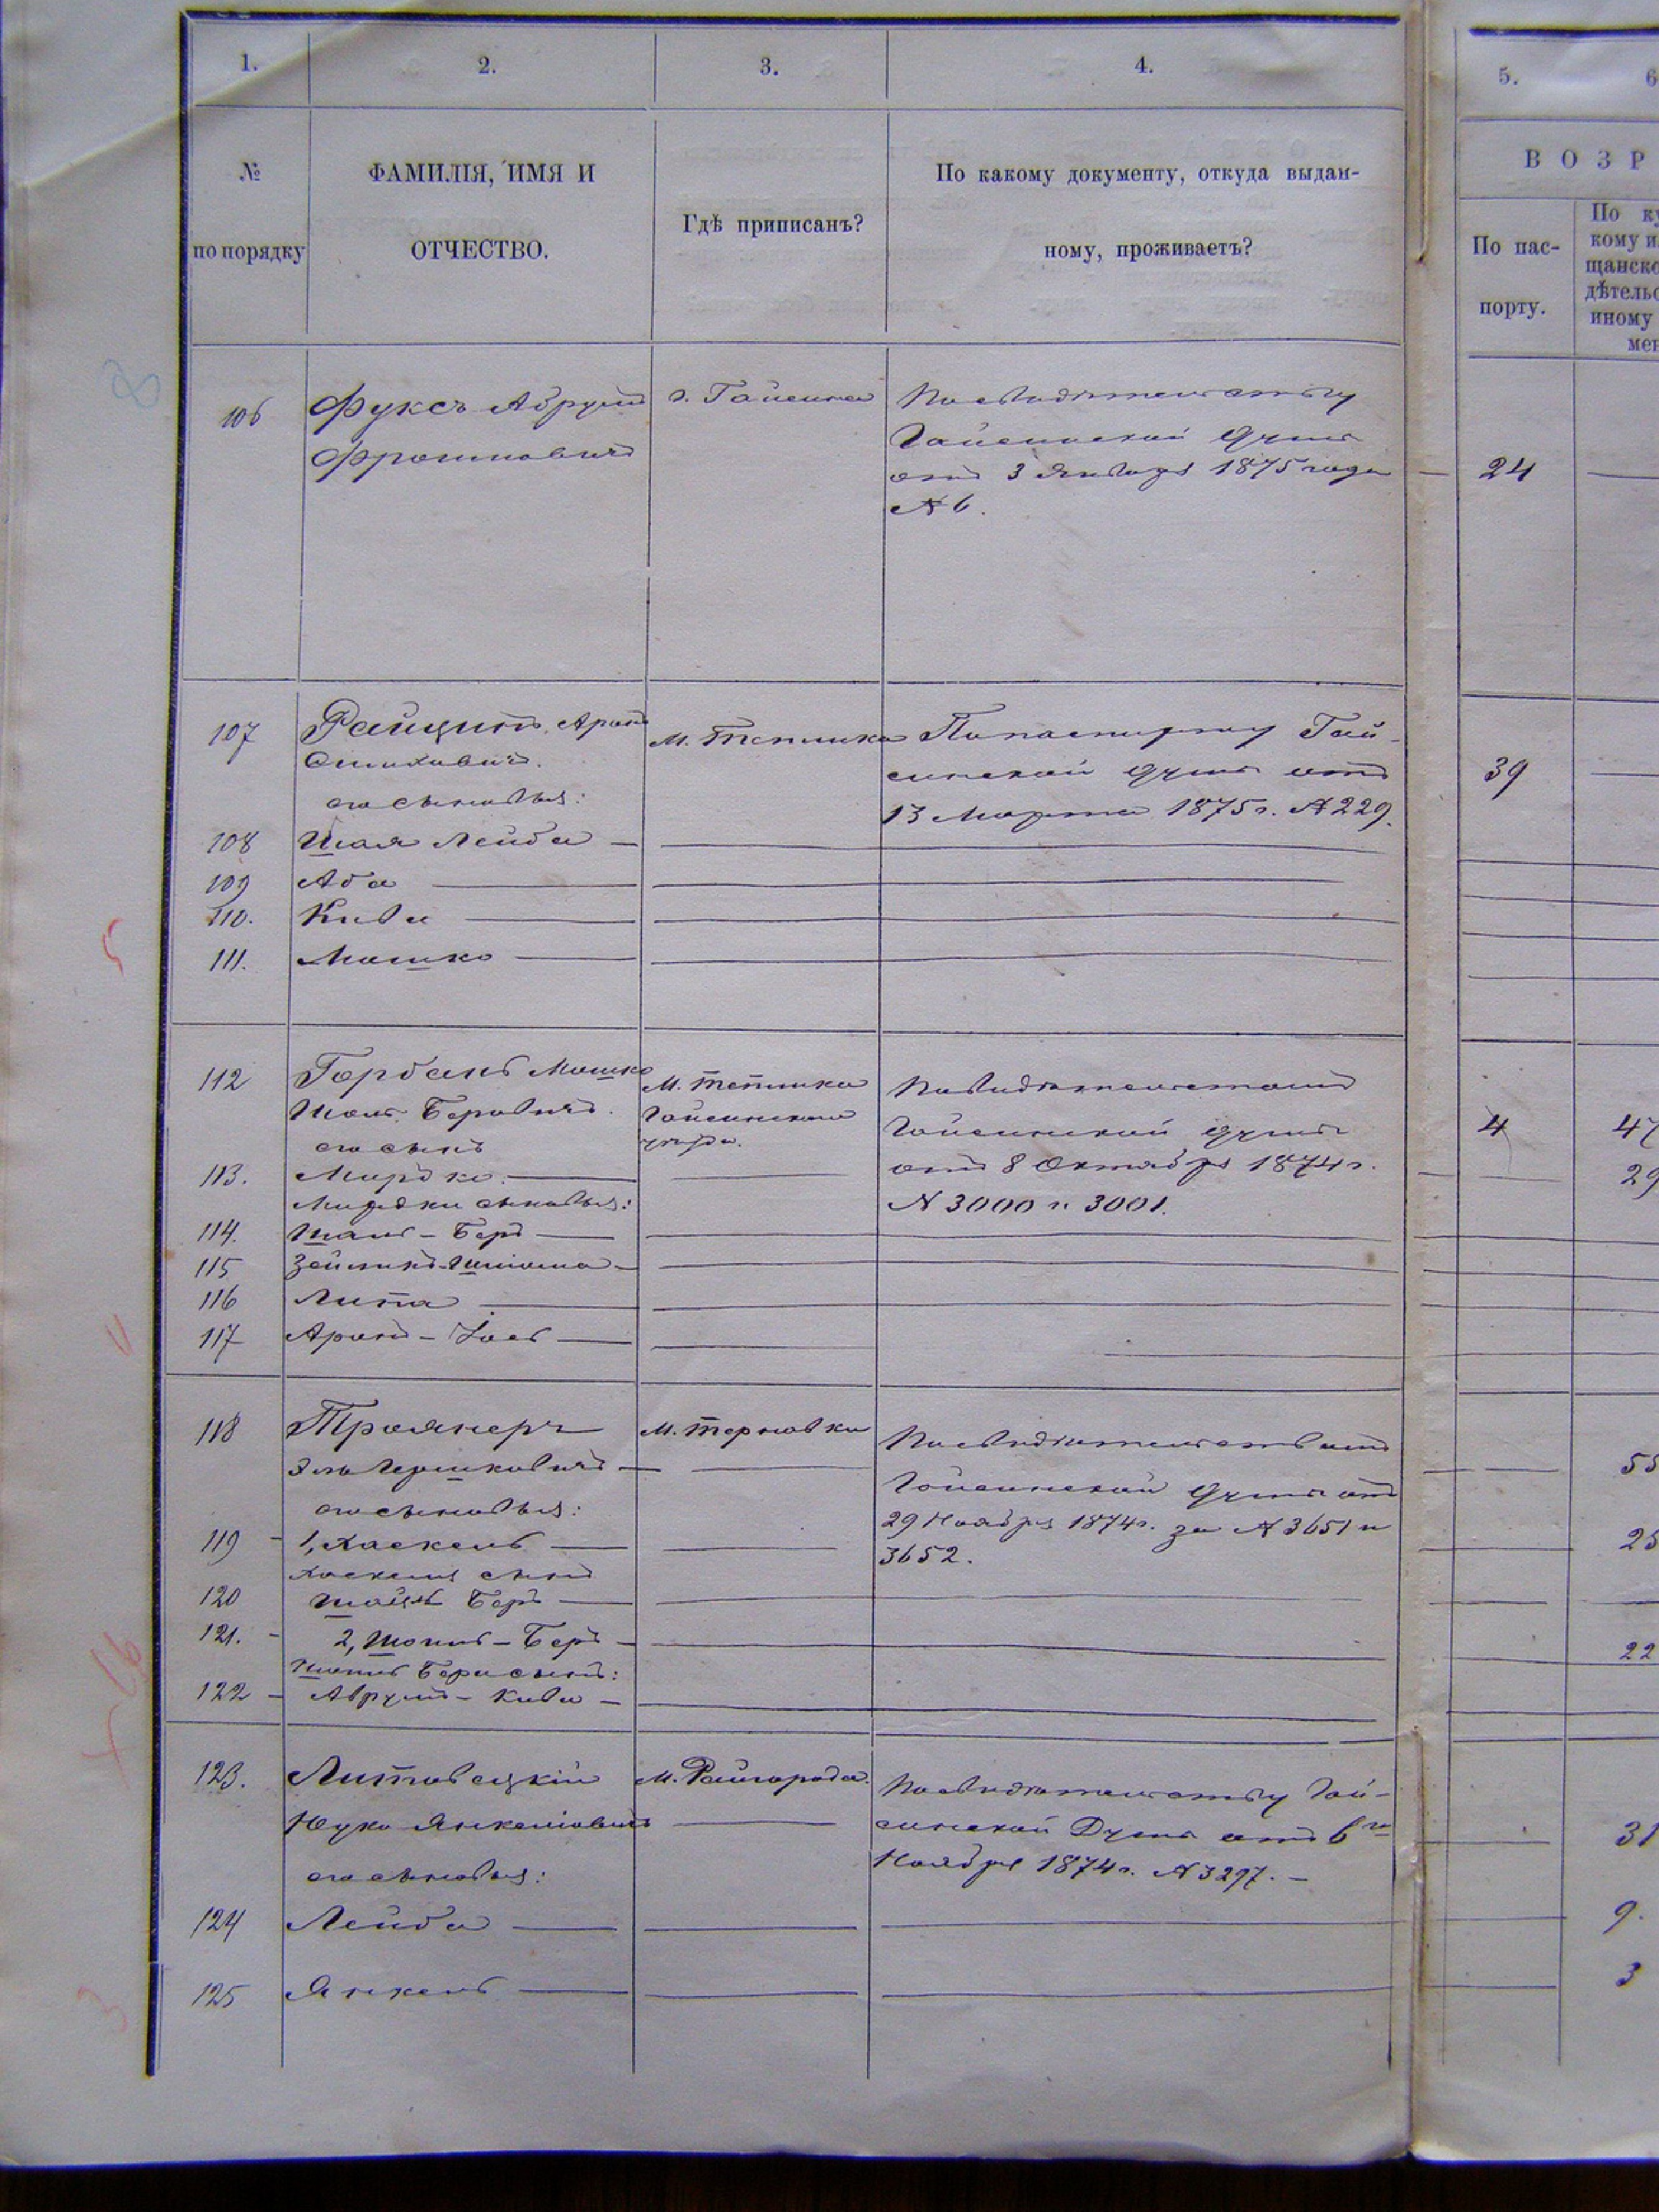 1.
2.
3.
4.
5.
6
№
по порядку
ФАМИЛІЯ, ИМЯ И
ОТЧЕСТВО.
Гдѣ приписанъ?
По какому документу, откуда выдан-
ному, проживаетъ?
ВОЗР
По пас-
порту.
По ку
кому и
щанско
дѣтельс
иному
мен
8
106
Фуксъ Абрумъ
г. Гайсина
По свидѣтельству
Гайсинской Думы
отъ 3 Января 1875 года
№ 6.
24
107
Райцинъ Аронъ
его сыновья:
м. Теплика
По паспорту Гай-
синской Думы отъ
13 Марта 1875 г. № 229.
39
108
Шая Лейба
109
Аба
110.
Кива
111.
Мошко
5
112
Горбань Мошко
Беровичъ.
его сынъ
м. Теплика
Гайсинскаго
уѣзда.
Гайсинской Думы
отъ 8 Октября 1874 г.
№ 3000 и 3001.
4
47
113.
29
сыновья:
114.
Беръ
115
116
Липа
117
Аронъ-Іось
11
118
Троянеръ
Гершковичъ
его сыновья:
м. Терновки
По свидѣтельствамъ
Гайсинской Думы отъ
29 Ноября 1874 г. за № 3651 и
3652.
55
119
1, Хаскель
25
Хаскеля сынъ
120
Беръ
121.
2, Беръ
22
Бера сынъ:
122
Аврумъ-Кива
16
123.
Литовецкій
Нуко Янкелiовичъ
его сыновья:
м. Райгорода.
По свидѣтельству Гай-
синской Думы отъ 6го
Ноября 1874 г. № 3297.
31
124
Лейба
9.
125
Янкель
3
3